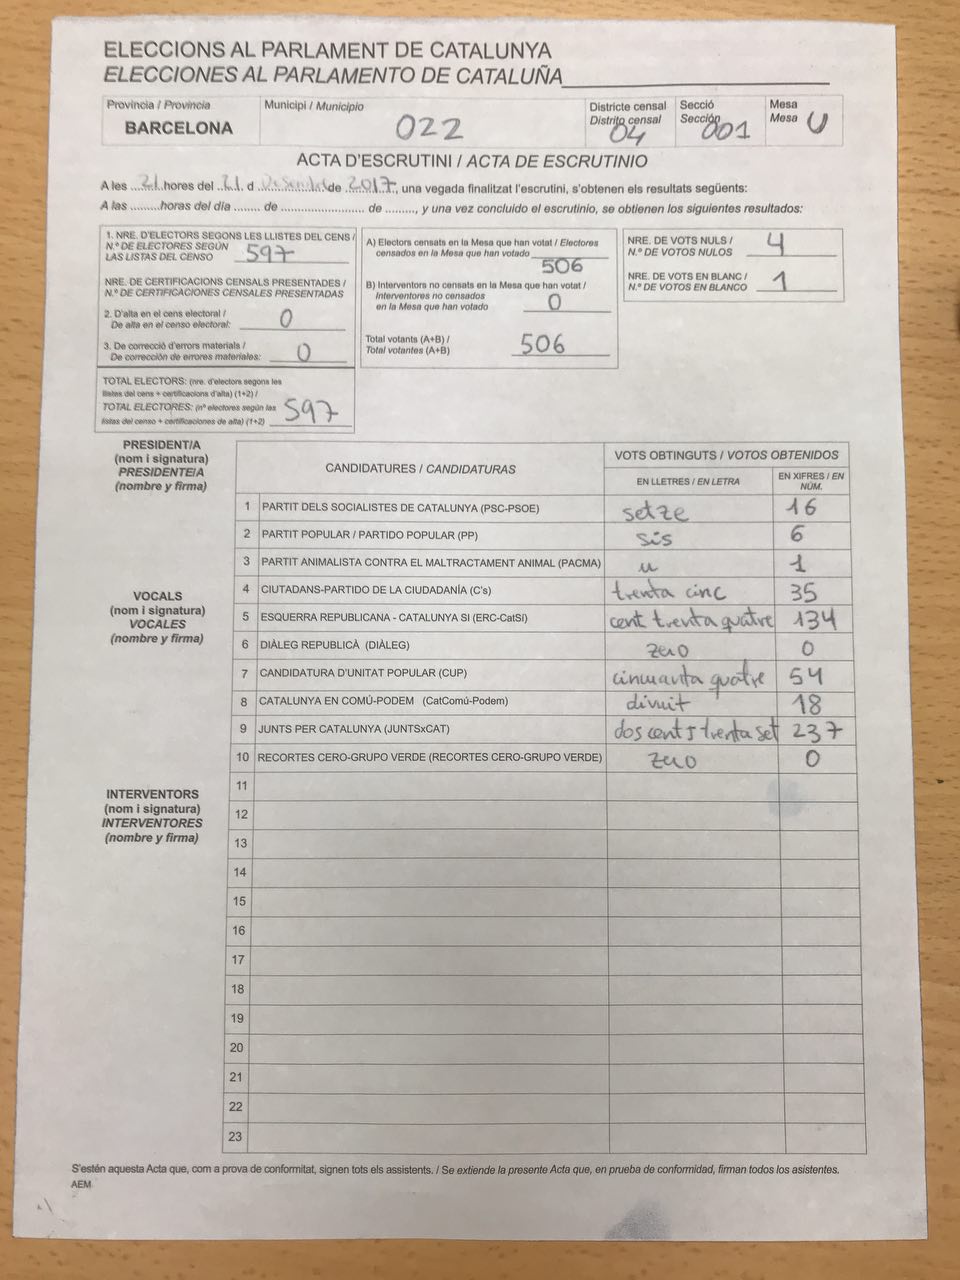 ELECCIONS AL PARLAMENT DE CATALUNYA
ELECCIONES AL PARLAMENTO DE CATALUÑA
Provincia / Provincia
BARCELONA
Municipi / Municipio
022
Districte censal
Distrito censal
04
Secció
Sección
001
Mesa
Mesa U
ACTA D'ESCRUTINI / ACTA DE ESCRUTINIO
A les ...21...hores del ..21. d ............de ..2017.., una vegada finalitzat l'escrutini, s'obtenen els resultats següents:
A las .........horas del día ........ de ......................... de ........., y una vez concluido el escrutinio, se obtienen los siguientes resultados:
1. NRE. D'ELECTORS SEGONS LES LLISTES DEL CENS /
N.º DE ELECTORES SEGÚN
LAS LISTAS DEL CENSO 597
NRE. DE CERTIFICACIONS CENSALS PRESENTADES /
N.º DE CERTIFICACIONES CENSALES PRESENTADAS
2. D'alta en el cens electoral /
De alta en el censo electoral: 0
3. De correcció d'errors materials /
De corrección de errores materiales: 0
TOTAL ELECTORS: (nre. d'electors segons les
llistes del cens + certificacions d'alta) (1+2) /
TOTAL ELECTORES: (nº electores según las
listas del censo + certificaciones de alta) (1+2) 597
A) Electors censats en la Mesa que han votat / Electores
censados en la Mesa que han votado 506
B) Interventors no censats en la Mesa que han votat /
Interventores no censados
en la Mesa que han votado 0
Total votants (A+B) /
Total votantes (A+B) 506
NRE. DE VOTS NULS /
N.º DE VOTOS NULOS 4
NRE. DE VOTS EN BLANC /
N.º DE VOTOS EN BLANCO 1
PRESIDENT/A
(nom i signatura)
PRESIDENTE/A
(nombre y firma)
VOCALS
(nom i signatura)
VOCALES
(nombre y firma)
INTERVENTORS
(nom i signatura)
INTERVENTORES
(nombre y firma)
CANDIDATURES / CANDIDATURAS
VOTS OBTINGUTS / VOTOS OBTENIDOS
EN LLETRES / EN LETRA
EN XIFRES / EN
NÚM.
1 PARTIT DELS SOCIALISTES DE CATALUNYA (PSC-PSOE) setze 16
2 PARTIT POPULAR / PARTIDO POPULAR (PP) sis 6
3 PARTIT ANIMALISTA CONTRA EL MALTRACTAMENT ANIMAL (PACMA) u 1
4 CIUTADANS-PARTIDO DE LA CIUDADANÍA (C's) trenta cinc 35
5 ESQUERRA REPUBLICANA - CATALUNYA SI (ERC-CatSí) cent trenta quatre 134
6 DIÀLEG REPUBLICÀ (DIÀLEG) zero 0
7 CANDIDATURA D'UNITAT POPULAR (CUP) cinquanta quatre 54
8 CATALUNYA EN COMÚ-PODEM (CatComú-Podem) divuit 18
9 JUNTS PER CATALUNYA (JUNTSxCAT) dos cents trenta set 237
10 RECORTES CERO-GRUPO VERDE (RECORTES CERO-GRUPO VERDE) zero 0
11
12
13
14
15
16
17
18
19
20
21
22
23
S'estén aquesta Acta que, com a prova de conformitat, signen tots els assistents. / Se extiende la presente Acta que, en prueba de conformidad, firman todos los asistentes.
AEM